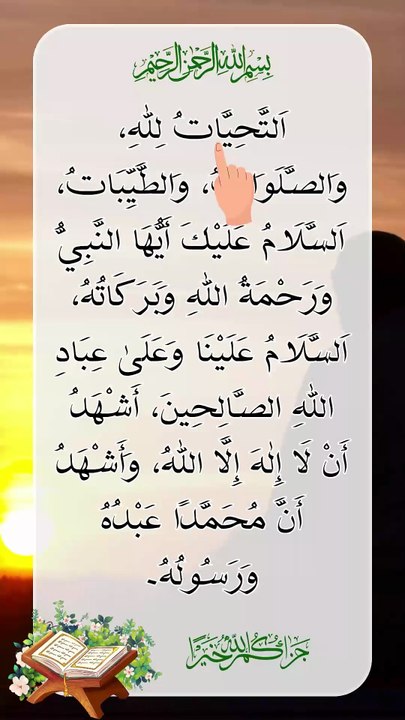 بِسْمِ اللهِ الرَّحْمٰنِ الرَّحِيْمِ
اَلتَّحِيَّاتُ لِلّٰهِ،
وَالصَّلَوَاتُ، وَالطَّيِّبَاتُ،
اَلسَّلَامُ عَلَيْكَ أَيُّهَا النَّبِيُّ
وَرَحْمَةُ اللهِ وَبَرَكَاتُهُ،
اَلسَّلَامُ عَلَيْنَا وَعَلَىٰ عِبَادِ
اللهِ الصَّالِحِينَ، أَشْهَدُ
أَنْ لَا إِلٰهَ إِلَّا اللهُ، وَأَشْهَدُ
أَنَّ مُحَمَّدًا عَبْدُهُ
وَرَسُولُهُ.
جَزَاكُمُ اللهُ خَيْرًا